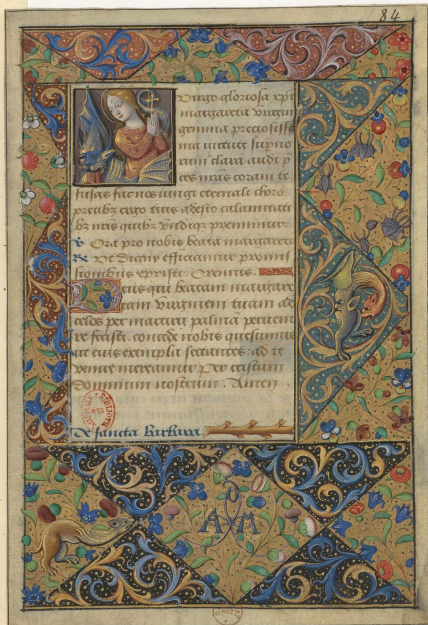 84
Virgo gloriosa xpi
margareta virgin
gemma preciosissi
ma virtute supno
rum clara audi p
ces nras coram te
fusas
preabz ergo tuis adesto calamitati
bz nris quibz vndiqz premimur
Ora pro nobis beata margareta
Vt digni efficiamur promis
sionibus christi Oremus
Deus qui beatam margare
tam virginem tuam ad
celos per martirii palmam peruenire
fecisti concede nobis quesumus
vt eius exempla sectantes ad te
venire mereamur Per cristum
dominum nostrum Amen
De sancta Barbara
A M